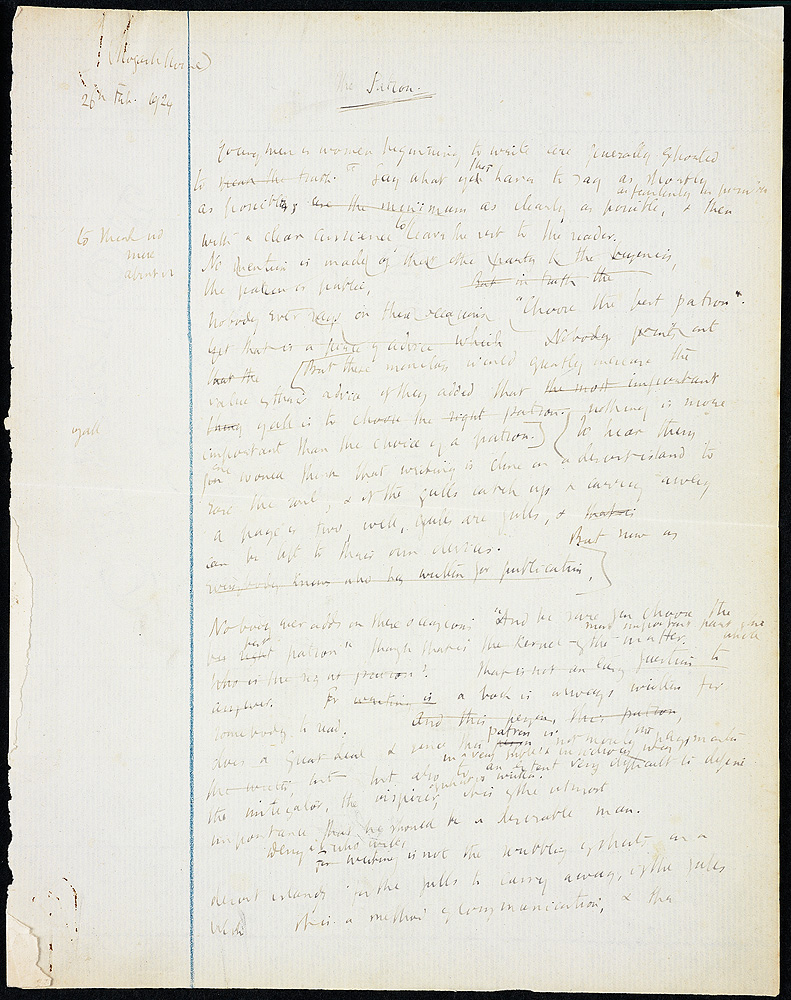 (Hogarth House)
26th Feb. 1924
The Patron.
Young men & women beginning to write are generally exhorted
to say what you have to say as shortly
as possible, as the minimum as clearly as possible, & then
with a clear conscience to leave the rest to the reader.
to think no
more
about it
No mention is made of the other party to the business,
the patron or public, But in truth the
Nobody ever says on these occasions "Choose the best patron".
yet that is a piece of advice which Nobody points out
that the But these monitors would greatly increase the
value of their advice if they added that the most important
of all
thing of all is to choose the right patron. nothing is more
important than the choice of a patron. To hear them
you would think that writing is done on a desert island to
ease the soul, & if the gulls catch up & carry away
a page or two, well, gulls are gulls, & that is
can be left to their own devices. But now as
everybody knows who has written for publication,
Nobody ever adds on these occasions "And be sure you choose the
best right patron" though that is the kernel of the matter.
Who is the right patron? That is not an easy question to
answer. For writing is a book is always written for
somebody to read. And this person, the patron,
does a great deal & since the patron is not merely the paymaster
but also
the instigator, the inspirer of what is written, it is of the utmost
importance that he should be a desirable man.
For writing is not the
desert islands for the gulls to carry away, if the gulls
wish it is a method of communication, & the